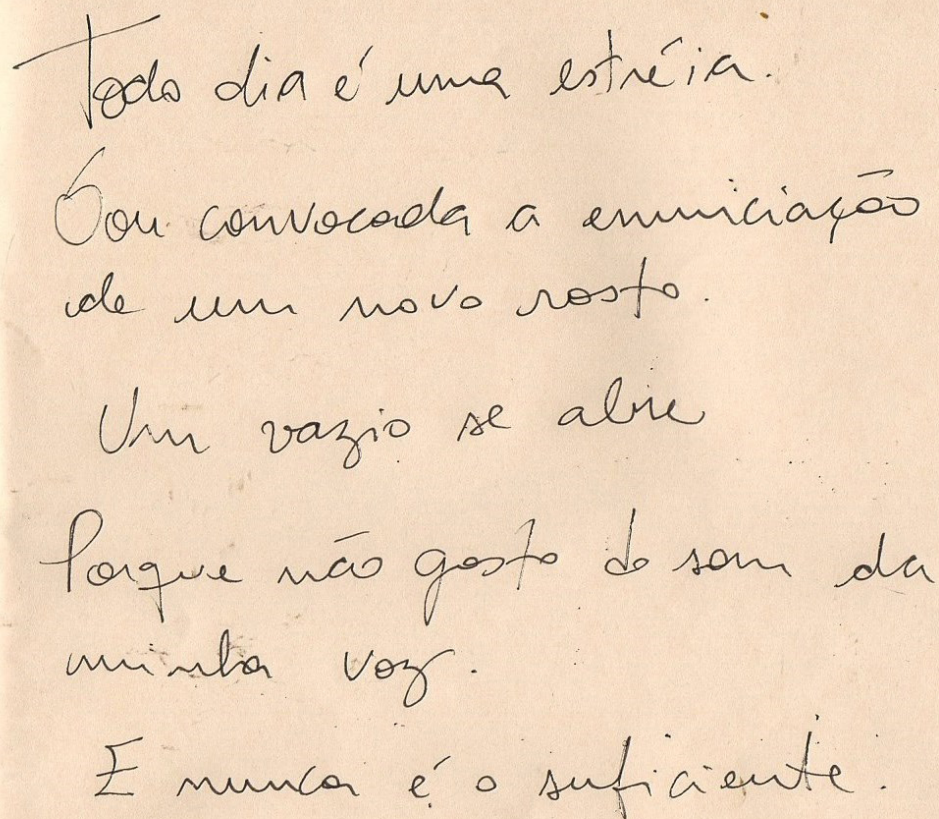 Todo dia é uma estréia.
Sou convocada a enunciação
de um novo rosto.
Um vazio se abre
Porque não gosto do som da
minha voz.
E nunca é o suficiente.